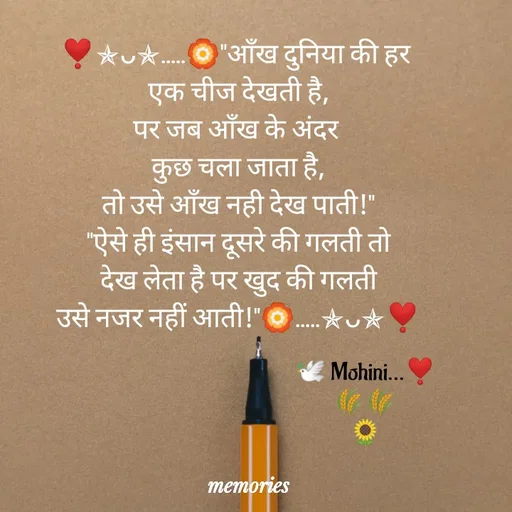 ❣️✯ᴗ✯.....🏵️"आँख दुनिया की हर
एक चीज देखती है,
पर जब आँख के अंदर
कुछ चला जाता है,
तो उसे आँख नही देख पाती!"
"ऐसे ही इंसान दूसरे की गलती तो
देख लेता है पर खुद की गलती
उसे नजर नहीं आती!"🏵️.....✯ᴗ✯❣️
🕊️ Mohini...❣️
🌾🌾
🌻
memories